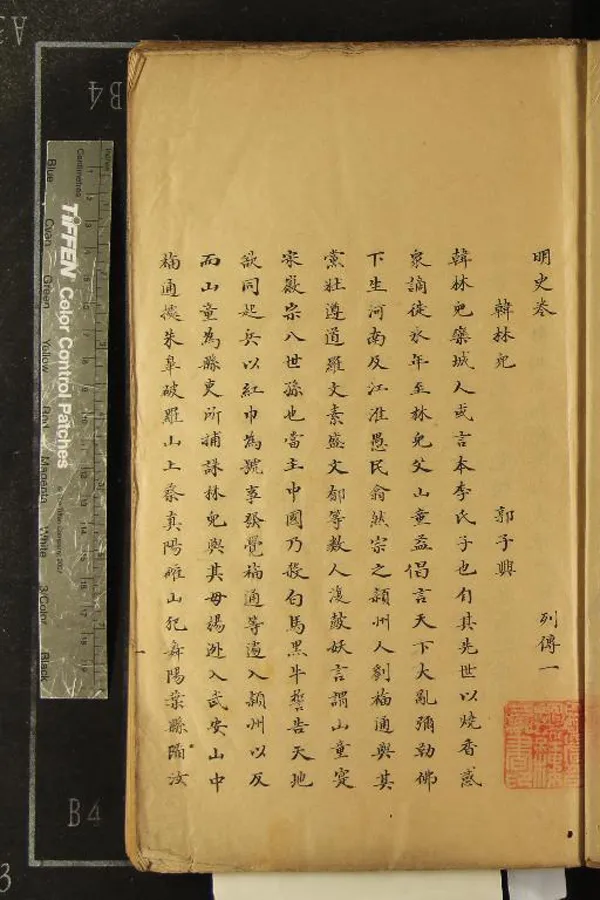 明史卷
列傳一
韓林兒 郭子興
韓林兒欒城人或言本李氏子也自其先世以燒香惑
衆謫徙永年至林兒父山童益倡言天下大亂彌勒佛
下生河南及江淮愚民翕然宗之潁州人劉福通與其
黨杜遵道羅文素盛文郁等數人復鼓妖言謂山童實
宋徽宗八世孫也當主中國乃殺白馬黑牛誓告天地
欲同起兵以紅巾為號事發覺福通等遽入潁州以反
而山童為縣吏所捕誅林兒與其母楊逃入武安山中
福通據朱皋破羅山上蔡真陽確山犯舞陽葉縣陷汝
TIFFEN Color Control Patches
Centimetres
Blue
Cyan
Green
Yellow
Red
Magenta
White
3/Color
Black
A3
B4
B4